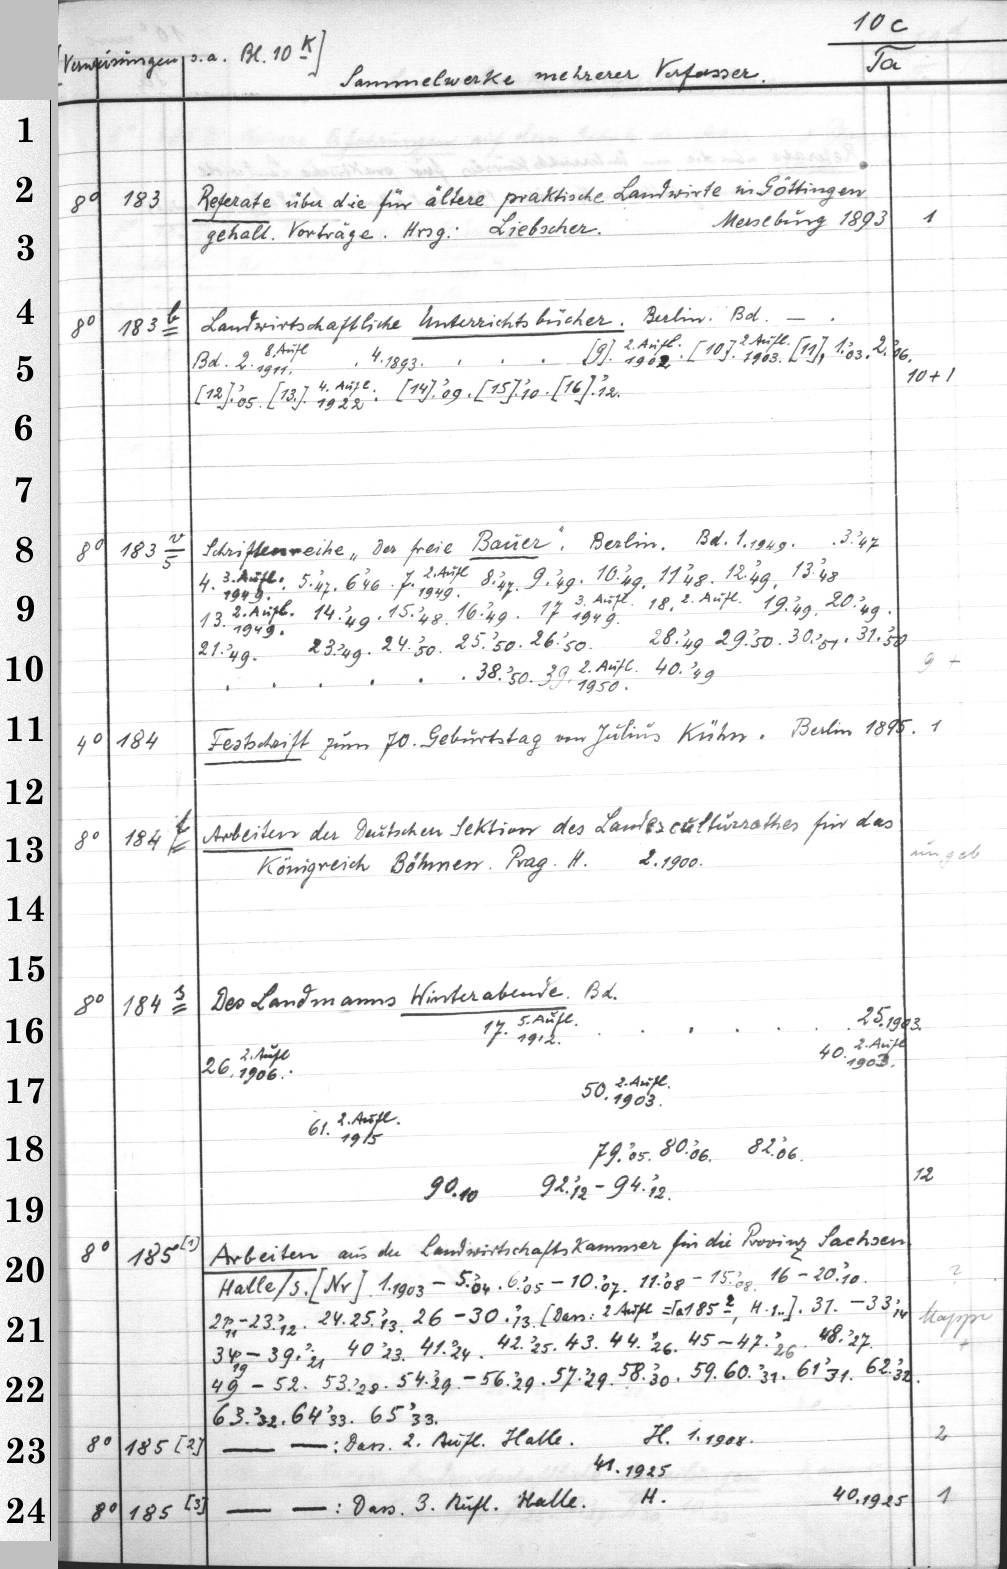 10 c
[Verweisungen s.a. Bl. 10 K]
Sammelwerke mehrerer Verfasser.
Ta
1
2
8° 183 Referate über die für ältere praktische Landwirte in Göttingen
gehalt. Vorträge. Hrsg.: Liebscher. Merseburg 1893 1
3
4
8° 183 b Landwirtschaftliche Unterrichtsbücher. Berlin. Bd. — .
Bd. 2. 8. Aufl. 1911. . 4. 1893. . . . . [9]. 2. Aufl. 1902. [10]. 2 Aufl. 1903. [11], 1.'03. 2.'06.
5
[12].'05. [13.] 4. Aufl. 1922. [14].'09. [15].'10. [16].'12. 10+1
6
7
8
8° 183 v/5 Schriftenreihe „Der freie Bauer“. Berlin. Bd. 1. 1949. . 3.'47
4. 3. Aufl. 1949. 5.'47. 6'46. 7. 2. Aufl 1949. 8.'47. 9.'49. 10.'49. 11'48. 12.'49. 13.'48
9
13. 2. Aufl. 1949. 14.'49. 15.'48. 16.'49. 17 3. Aufl. 1949. 18. 2. Aufl. 19.'49. 20.'49.
21.'49. 23.'49. 24.'50. 25.'50. 26.'50. 28.'49 29.'50. 30.'51. 31.'50
10
. . . . . . 38.'50. 39. 2. Aufl. 1950. 40.'49 9 +
11
4° 184 Festschrift zum 70. Geburtstag von Julius Kühn. Berlin 1895. 1
12
13
8° 184 f Arbeiten der Deutschen Sektion des Landesculturrathes für das
Königreich Böhmen. Prag. H. 2. 1900. ungeb
14
15
8° 184 s Des Landmanns Winterabende. Bd.
16
17. 5. Aufl. 1912. . . . . . . 25. 1903.
26. 2. Aufl 1906. . 40. 2. Aufl 1903.
17
50. 2. Aufl. 1903.
61. 2. Aufl. 1915
18
79.'05. 80.'06. 82.'06.
90.10 92.'12 – 94.'12. 12
19
20
8° 185 [1] Arbeiten aus der Landwirtschaftskammer für die Provinz Sachsen
Halle/S. [Nr] 1. 1903 – 5.'04. 6.'05 – 10.'07. 11.'08 – 15.'08. 16 – 20.'10. ?
21
–23.'12. 24. 25.'13. 26 – 30.'13. 31. – 33.'14 Mappe
– 39.'21 40'23. 41.'24. 42.'25. 43. 44.'26. 45 – 47.'26 48.'27. +
22
49 – 52. 53.'28. 54.'29. – 56.'29. 57.'29. 58.'30. 59. 60.'31. 61'31. 62.'32.
63.'32. 64'33. 65'33.
23
8° 185 [2] — — : Dass. 2. Aufl. Halle. H. 1. 1908. 2
41. 1925
24
8° 185 [3] — — : Dass. 3. Aufl. Halle. H. 40. 1925 1